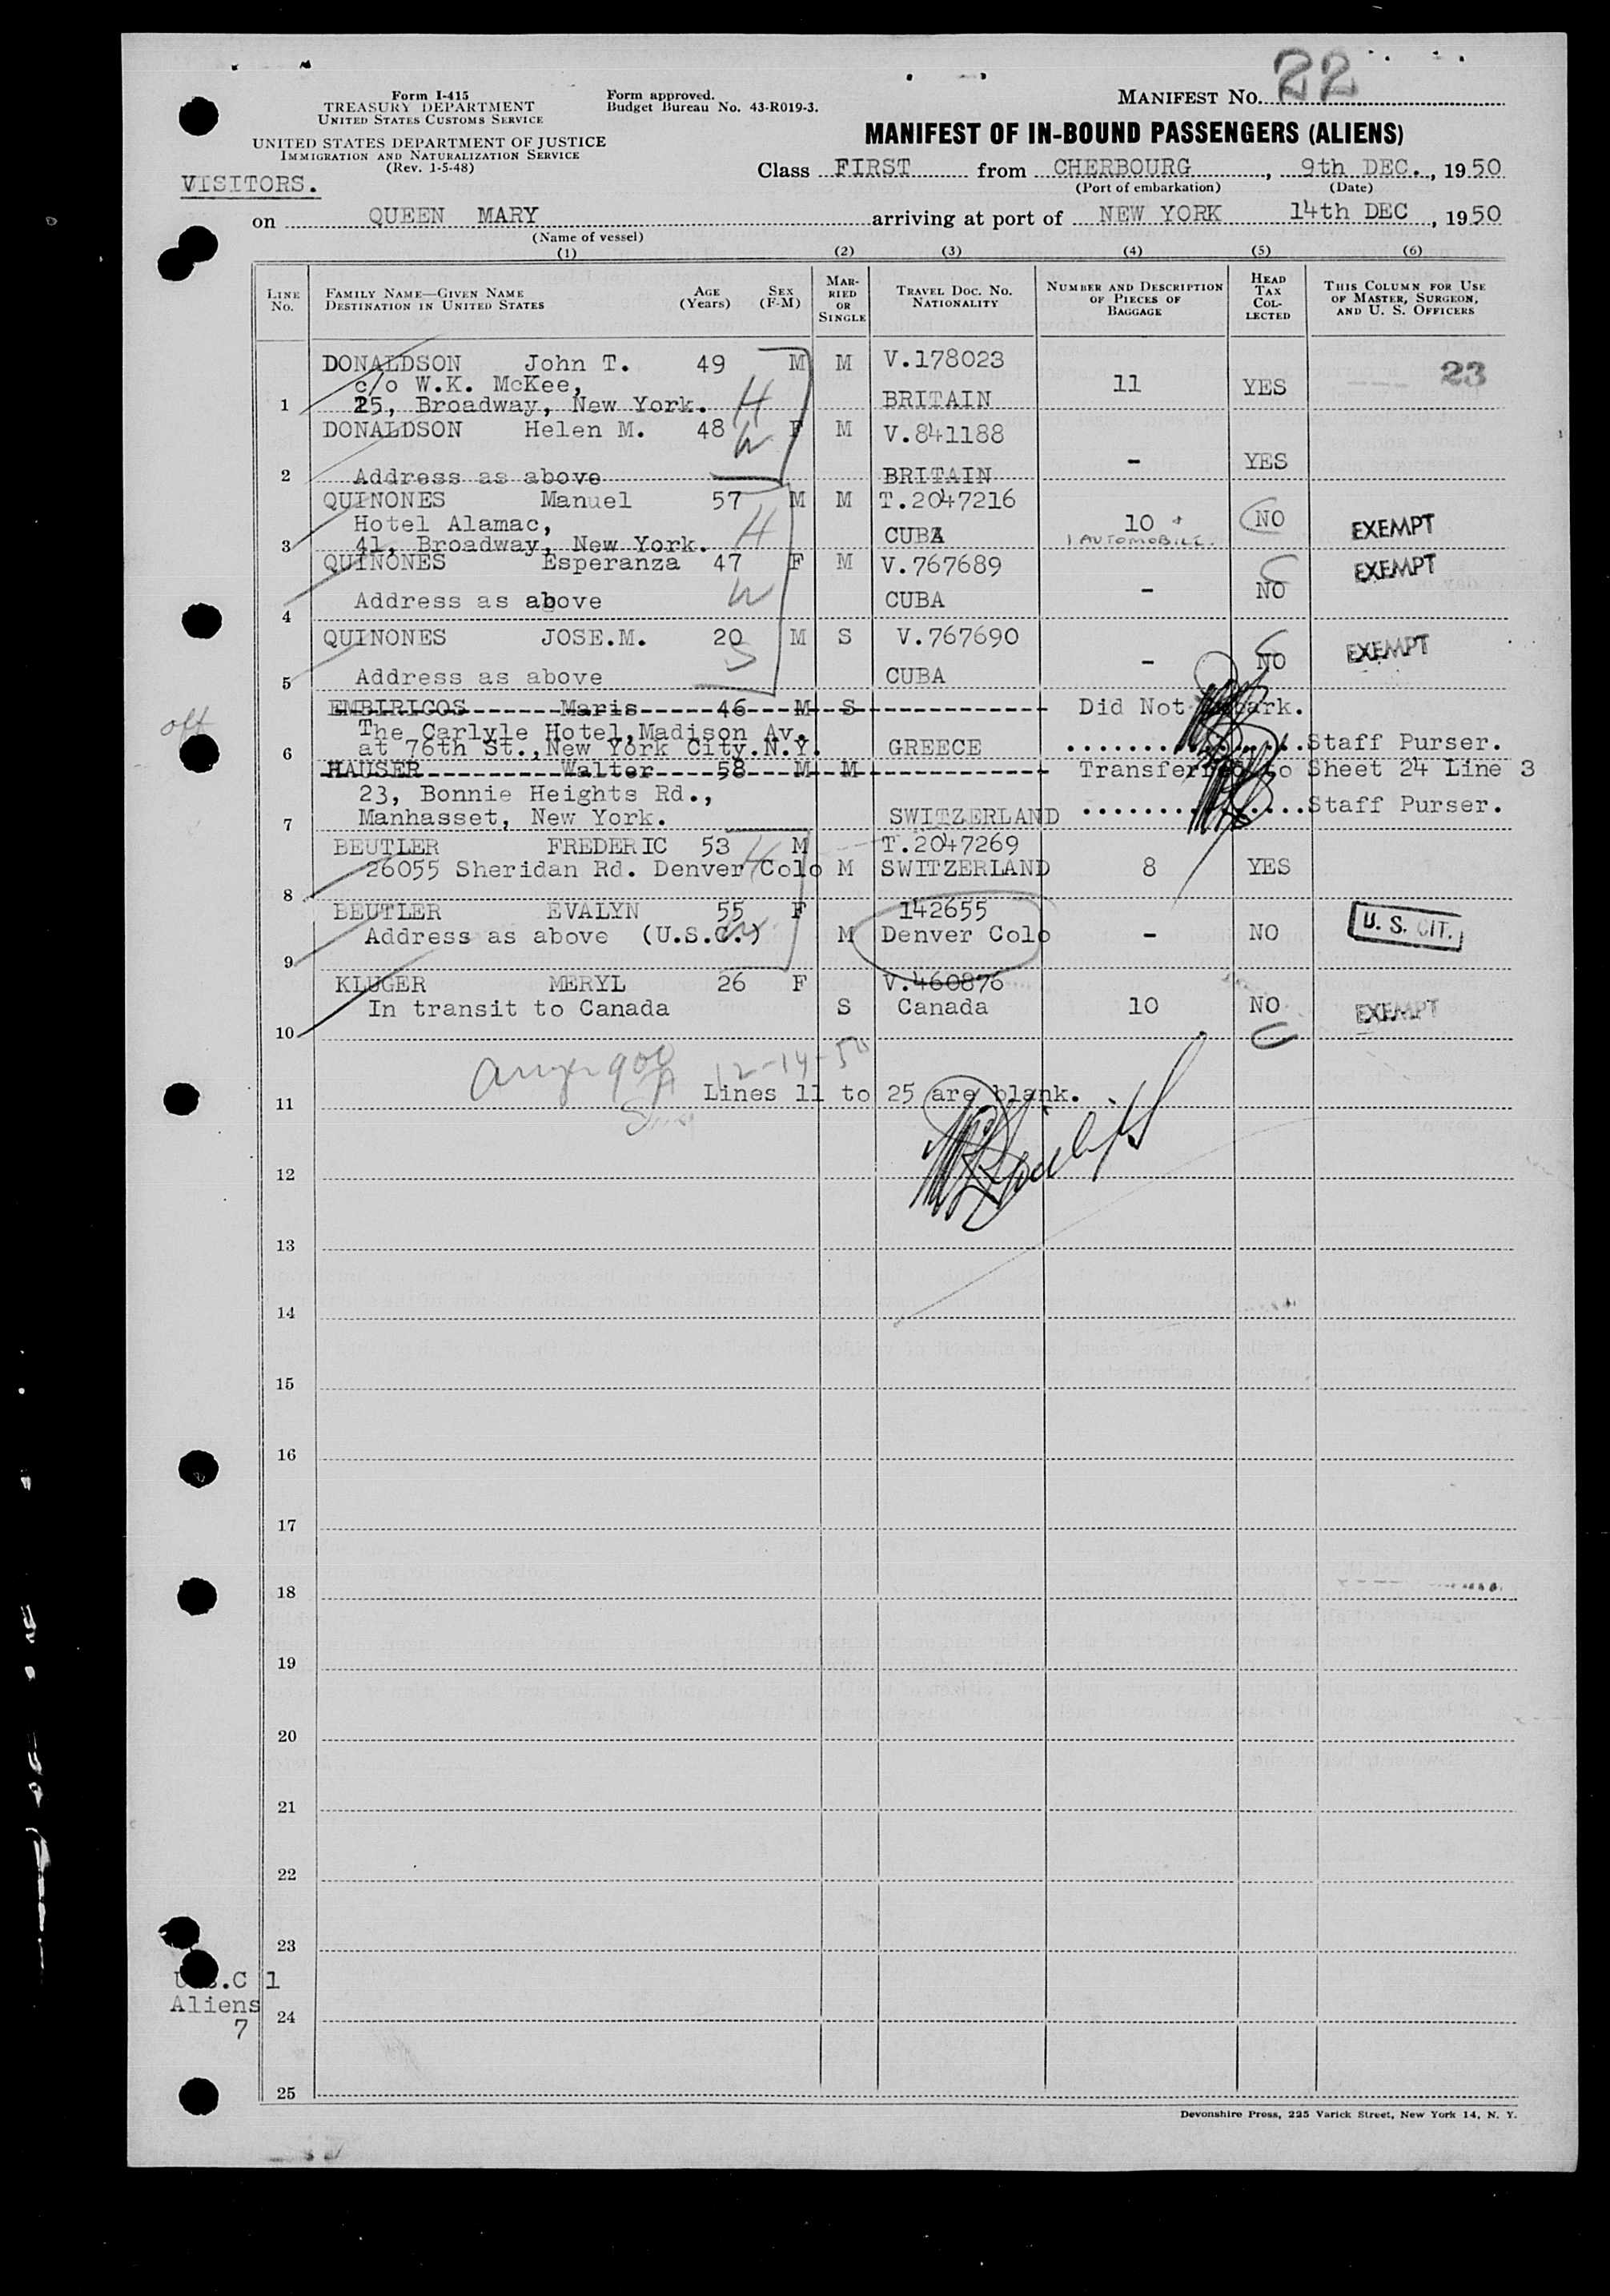 Form I-415
TREASURY DEPARTMENT
UNITED STATES CUSTOMS SERVICE
UNITED STATES DEPARTMENT OF JUSTICE
IMMIGRATION AND NATURALIZATION SERVICE
(Rev. 1-5-48)
VISITORS.
Form approved.
Budget Bureau No. 43-R019-3.
MANIFEST NO. 22
MANIFEST OF IN-BOUND PASSENGERS (ALIENS)
Class FIRST from CHERBOURG, 9th DEC., 1950
(Port of embarkation) (Date)
on QUEEN MARY arriving at port of NEW YORK 14th DEC, 1950
(Name of vessel)
(1) (2) (3) (4) (5) (6)
LINE NO. FAMILY NAME—GIVEN NAME DESTINATION IN UNITED STATES AGE (Years) SEX (F-M) MARRIED OR SINGLE TRAVEL DOC. NO. NATIONALITY NUMBER AND DESCRIPTION OF PIECES OF BAGGAGE HEAD TAX COLLECTED THIS COLUMN FOR USE OF MASTER, SURGEON, AND U. S. OFFICERS
DONALDSON John T. 49 M M V.178023 23
c/o W.K. McKee, 11 YES
1 25, Broadway, New York. H BRITAIN
DONALDSON Helen M. 48 F M V.841188
W - YES
2 Address as above BRITAIN
QUINONES Manuel 57 M M T.2047216
Hotel Alamac, H CUBA 10 + NO EXEMPT
3 41, Broadway, New York. 1 AUTOMOBILE.
QUINONES Esperanza 47 F M V.767689 EXEMPT
4 Address as above W CUBA - NO
QUINONES JOSE.M. 20 M S V.767690
S - NO EXEMPT
5 Address as above CUBA
EMBIRICOS Maris 46 M S Did Not Embark.
off The Carlyle Hotel, Madison Av.
6 at 76th St., New York City.N.Y. GREECE Staff Purser.
HAUSER Walter 58 M M Transferred to Sheet 24 Line 3
23, Bonnie Heights Rd.,
7 Manhasset, New York. SWITZERLAND Staff Purser.
BEUTLER FREDERIC 53 M T.2047269
8 26055 Sheridan Rd. Denver Colo H M SWITZERLAND 8 YES
BEUTLER EVALYN 55 F 142655
9 Address as above (U.S.C.) W M Denver Colo - NO U. S. CIT.
KLUGER MERYL 26 F V.460876
10 In transit to Canada S Canada 10 NO EXEMPT
12-14-50
11 Lines 11 to 25 are blank.
12
13
14
15
16
17
18
19
20
21
22
23
U.S.C 1
Aliens
24
7
25
Devonshire Press, 225 Varick Street, New York 14, N. Y.